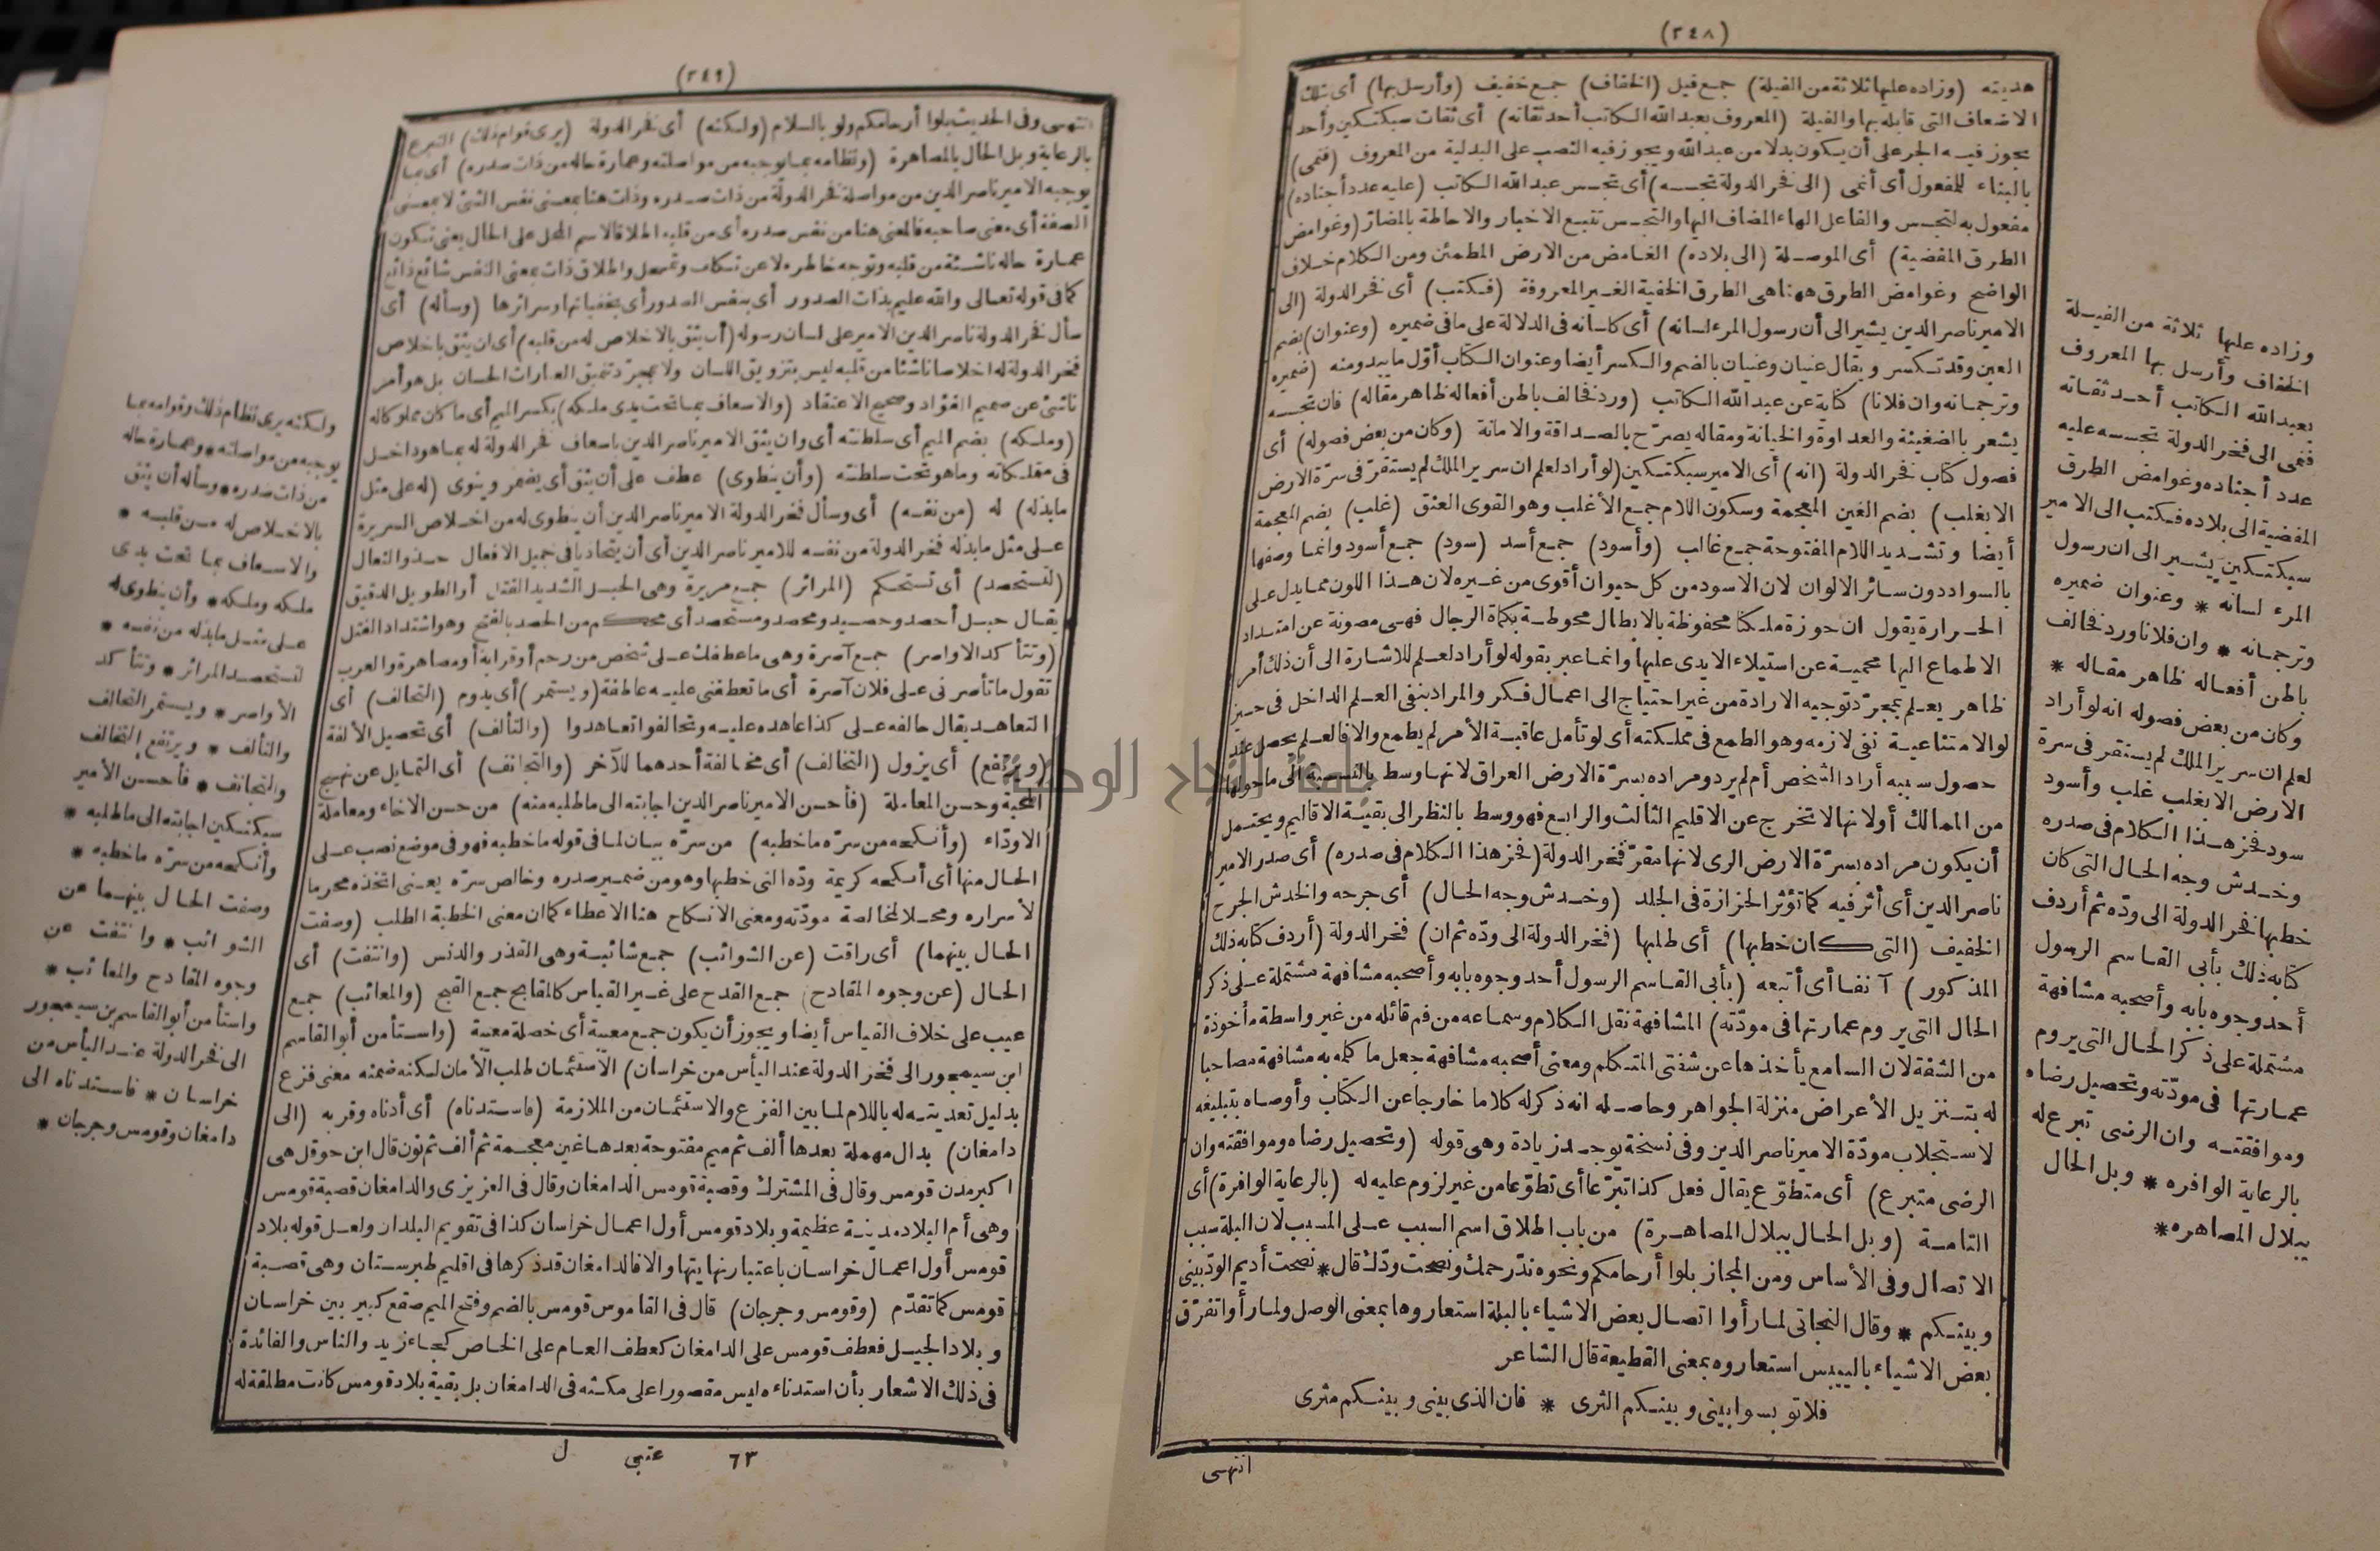 (٢٤٨)
هديته (وزاده عليها ثلاثة من الفيلة) جمع فيل (الخفاف) جمع خفيف (وأرسل بها) أى بتلك
الاضعاف التى قابله بها والفيلة (المعروف بعبد الله الكاتب أحد ثقاته) أى ثقات سبكتكين وأحد
يجوز فيه الجر على أن يكون بدلا من عبد الله ويجوز فيه النصب على البدلية من المعروف (فنمى)
بالبناء للمفعول أى أنمى (الى فخر الدولة تجسسه) أى تجسس عبد الله الكاتب (عليه عدد أجناده)
مفعول به لتجسس والفاعل الهاء المضاف اليها والتجسس تتبع الاخبار والاحاطة بالمضار (وغوامض
الطرق المفضية) أى الموصلة (الى بلاده) الغامض من الارض المطمئن ومن الكلام خلاف
الواضح وغوامض الطرق ههنا هى الطرق الخفية الغير المعروفة (فكتب) أى فخر الدولة (الى
الامير ناصر الدين يشير الى أن رسول المرء لسانه) أى كلسانه فى الدلالة على ما فى ضميره (وعنوان) بضم
العين وقد تكسر ويقال عنيان وغنيان بالضم والكسر أيضا وعنوان الكتاب أوّل ما يبدو منه (ضميره
وترجمانه وان فلانا) كناية عن عبد الله الكاتب (ورد فخالف باطن أفعاله ظاهر مقاله) فان تجسسه
يشعر بالضغينة والعداوة والخيانة ومقاله يصرّح بالصداقة والامانة (وكان من بعض فصوله) أى
فصول كتاب فخر الدولة (انه) أى الامير سبكتكين (لو أراد لعلم ان سرير الملك لم يستقرّ فى سرّة الارض
الا بغلب) بضم الغين المعجمة وسكون اللام جمع الأغلب وهو القوى العنق (غلب) بضم المعجمة
أيضا وتشديد اللام المفتوحة جمع غالب (وأسود) جمع أسد (سود) جمع أسود وانما وصفها
بالسواد دون سائر الالوان لان الاسود من كل حيوان أقوى من غيره لان هذا اللون مما يدل على
الحرارة يقول ان حوزة ملكنا محفوظة بالابطال محوطة بكماة الرجال فهى مصونة عن امتداد
الاطماع اليها محمية عن استيلاء الايدى عليها وانما عبر بقوله لو أراد لعلم للاشارة الى أن ذلك أمر
ظاهر يعلم بمجرّد توجيه الارادة من غير احتياج الى اعمال فكر والمراد بنفى العلم الداخل فى حيز
لو الامتناعية نفى لازمه وهو الطمع فى مملكته أى لو تأمل عاقبة الأمر لم يطمع والا فالعلم يحصل عند
حصول سببه أراد الشخص أم لم يرد ومراده بسرّة الارض العراق لانها وسط بالنسبة الى ما حولها
من الممالك أو لانها لا تخرج عن الاقليم الثالث والرابع فهو وسط بالنظر الى بقية الاقاليم ويحتمل
أن يكون مراده بسرّة الارض الرى لانها مقرّ فخر الدولة (فحز هذا الكلام فى صدره) أى صدر الامير
ناصر الدين أى أثر فيه كما تؤثر الحزازة فى الجلد (وخدش وجه الحال) أى جرحه والخدش الجرح
الخفيف (التى كان خطبها) أى طلبها (فخر الدولة الى ودّه ثم ان) فخر الدولة (أردف كتابه ذلك
المذكور) آنفا أى أتبعه (بأبى القاسم الرسول أحد وجوه بابه وأصحبه مشافهة مشتملة على ذكر
الحال التى يروم عمارتها فى مودّته) المشافهة نقل الكلام وسماعه من فم قائله من غير واسطة مأخوذة
من الشفة لان السامع يأخذها عن شفتى المتكلم ومعنى أصحبه مشافهة جعل ما كلمه به مشافهة مصاحبا
له بتنزيل الأعراض منزلة الجواهر وحاصله انه ذكر له كلاما خارجا عن الكتاب وأوصاه بتبليغه
لاستجلاب مودّة الامير ناصر الدين وفى نسخة يوجد زيادة وهى قوله (وتحصيل رضاه وموافقته وان
الرضى متبرع) أى متطوّع يقال فعل كذا تبرّعا أى تطوّعا من غير لزوم عليه له (بالرعاية الوافرة) أى
التامة (وبل الحال ببلال المصاهرة) من باب اطلاق اسم السبب على المسبب لان البلة سبب
الاتصال وفى الأساس ومن المجاز بلوا أرحامكم ونحوه ندّ رحمك ونضحت ودّك قال * نضحت أديم الودّ بينى
وبينكم * وقال النجاتى لما رأوا اتصال بعض الاشياء بالبلة استعاروها بمعنى الوصل ولما رأوا تفرّق
بعض الاشياء باليبس استعاروه بمعنى القطيعة قال الشاعر
فلا توبسوا بينى وبينكم الثرى * فان الذى بينى وبينكم مثرى
انتهى
وزاده عليها ثلاثة من الفيلة
الخفاف وأرسل بها المعروف
بعبد الله الكاتب أحد ثقاته
فنمى الى فخر الدولة تجسسه عليه
عدد أجناده وغوامض الطرق
المفضية الى بلاده فكتب الى الامير
سبكتكين يشير الى ان رسول
المرء لسانه * وعنوان ضميره
وترجمانه * وان فلانا ورد فخالف
باطن أفعاله ظاهر مقاله *
وكان من بعض فصوله انه لو أراد
لعلم ان سرير الملك لم يستقر فى سرة
الارض الا بغلب غلب وأسود
سود فحز هذا الكلام فى صدره
وخدش وجه الحال التى كان
خطبها فخر الدولة الى ودّه ثم أردف
كتابه ذلك بأبى القاسم الرسول
أحد وجوه بابه وأصحبه مشافهة
مشتملة على ذكر الحال التى يروم
عمارتها فى مودّته وتحصيل رضاه
وموافقته وان الرضى تبرع له
بالرعاية الوافره * وبل الحال
ببلال المصاهره *
(٢٤٩)
انتهى وفى الحديث بلوا أرحامكم ولو بالسلام (ولكنه) أى فخر الدولة (يرى قوام ذلك) التبرع
بالرعاية وبل الحال بالمصاهرة (ونظامه بما يوجبه من مواصلته وعمارة حاله من ذات صدره) أى بما
يوجبه الامير ناصر الدين من مواصلة فخر الدولة من ذات صدره وذات هنا بمعنى نفس الشئ لا بمعنى
الصفة أى معنى صاحبه فالمعنى هنا من نفس صدره أى من قلبه اطلاقا لاسم المحل على الحال يعنى تكون
عمارة حاله ناشئة من قلبه وتوجه خاطره لا عن تكلف وتعمل واطلاق ذات بمعنى النفس شائع ذائع
كما فى قوله تعالى والله عليم بذات الصدور أى بنفس الصدور أى بخفياتها وسرائرها (وسأله) أى
سأل فخر الدولة ناصر الدين الامير على لسان رسوله (أن يثق بالاخلاص له من قلبه) أى ان يثق باخلاص
فخر الدولة له اخلاصا ناشئا من قلبه ليس بتزويق اللسان ولا بمجرّد تنميق العبارات الحسان بل هو أمر
ناشئ عن صميم الفؤاد وصحيح الاعتقاد (والاسعاف بما تحت يدى ملكه) بكسر الميم أى ما كان مملوكا له
(وملكه) بضم الميم أى سلطنته أى وان يثق الامير ناصر الدين باسعاف فخر الدولة له بما هو داخل
فى ممتلكاته وما هو تحت سلطنته (وأن ينطوى) عطف على أن يثق أى يضمر وينوى (له على مثل
ما بذله) له (من نفسه) أى وسأل فخر الدولة الامير ناصر الدين أن ينطوى له من اخلاص السريرة
على مثل ما بذله فخر الدولة من نفسه للامير ناصر الدين أى أن يتحاذيا فى جميل الافعال حذو النعال
(لتستحصد) أى تستحكم (المرائر) جمع مريرة وهى الحبل الشديد الفتل أو الطويل الدقيق
يقال حبل أحصد وحصيد ومحصد ومستحصد أى محكم من الحصد بالفتح وهو اشتداد الفتل
(وتتأكد الاواصر) جمع آصرة وهى ما عطفك على شخص من رحم أو قرابة أو مصاهرة والعرب
تقول ما تأصرنى على فلان آصرة أى ما تعطفنى عليه عاطفة (ويستمر) أى يدوم (التحالف) أى
التعاهد يقال حالفه على كذا عاهده عليه وتحالفوا تعاهدوا (والتألف) أى تحصيل الألفة
(ويرتفع) أى يزول (التخالف) أى مخالفة أحدهما للآخر (والتجانف) أى التمايل عن نهج
المحبة وحسن المعاملة (فأحسن الامير ناصر الدين اجابته الى ما طلبه منه) من حسن الاخاء ومعاملة
الاودّاء (وأنكحه من سرّه ما خطبه) من سرّه بيان لما فى قوله ما خطبه فهو فى موضع نصب على
الحال منها أى أنكحه كريمة ودّه التى خطبها وهو من ضمير صدره وخالص سرّه يعنى اتخذه محرما
لأسراره ومحلا لمخالصة مودّته ومعنى الانكاح هنا الاعطاء كما ان معنى الخطبة الطلب (وصفت
الحال بينهما) أى راقت (عن الشوائب) جمع شائبة وهى القذر والدنس (وانتفت) أى
الحال (عن وجوه المقادح) جمع القدح على غير القياس كالمقابح جمع القبح (والمعائب) جمع
عيب على خلاف القياس أيضا ويجوز أن يكون جمع معيبة أى خصلة معيبة (واستأمن أبو القاسم
ابن سيمجور الى فخر الدولة عند اليأس من خراسان) الاستئمان طلب الأمان لكنه ضمنه معنى فزع
بدليل تعديته له باللام لما بين الفزع والاستئمان من الملازمة (فاستدناه) أى أدناه وقربه (الى
دامغان) بدال مهملة بعدها ألف ثم ميم مفتوحة بعدها غين معجمة ثم ألف ثم نون قال ابن حوقل هى
اكبر مدن قومس وقال فى المشترك وقصبة قومس الدامغان وقال فى العزيزى والدامغان قصبة قومس
وهى أم البلاد مدينة عظيمة وبلاد قومس أول اعمال خراسان كذا فى تقويم البلدان ولعل قوله بلاد
قومس أول اعمال خراسان باعتبار نهايتها والا فالدامغان قد ذكرها فى اقليم طبرستان وهى قصبة
قومس كما تقدّم (وقومس وجرجان) قال فى القاموس قومس بالضم وفتح الميم صقع كبير بين خراسان
وبلاد الجبل فعطف قومس على الدامغان كعطف العام على الخاص كجاء زيد والناس والفائدة
فى ذلك الاشعار بأن استدناءه ليس مقصورا على مكثه فى الدامغان بل بقية بلاد قومس كانت مطلقة له
٦٣ عتبى ل
ولكنه يرى نظام ذلك وقوامه بما
يوجبه من مواصلته * وعمارة حاله
من ذات صدره * وسأله أن يثق
بالاخلاص له من قلبه *
والاسعاف بما تحت يدى
ملكه وملكه * وأن ينطوى له
على مثل ما بذله من نفسه *
لتستحصد المرائر * وتتأكد
الأواصر * ويستمر التحالف
والتألف * ويرتفع التخالف
والتجانف * فأحسن الأمير
سبكتكين اجابته الى ما طلبه *
وأنكحه من سرّه ما خطبه *
وصفت الحال بينهما عن
الشوائب * وانتفت عن
وجوه المقادح والمعائب *
واستأمن أبو القاسم بن سيمجور
الى فخر الدولة عند اليأس من
خراسان * فاستدناه الى
دامغان وقومس وجرجان *
جامعة النجاح الوطنية